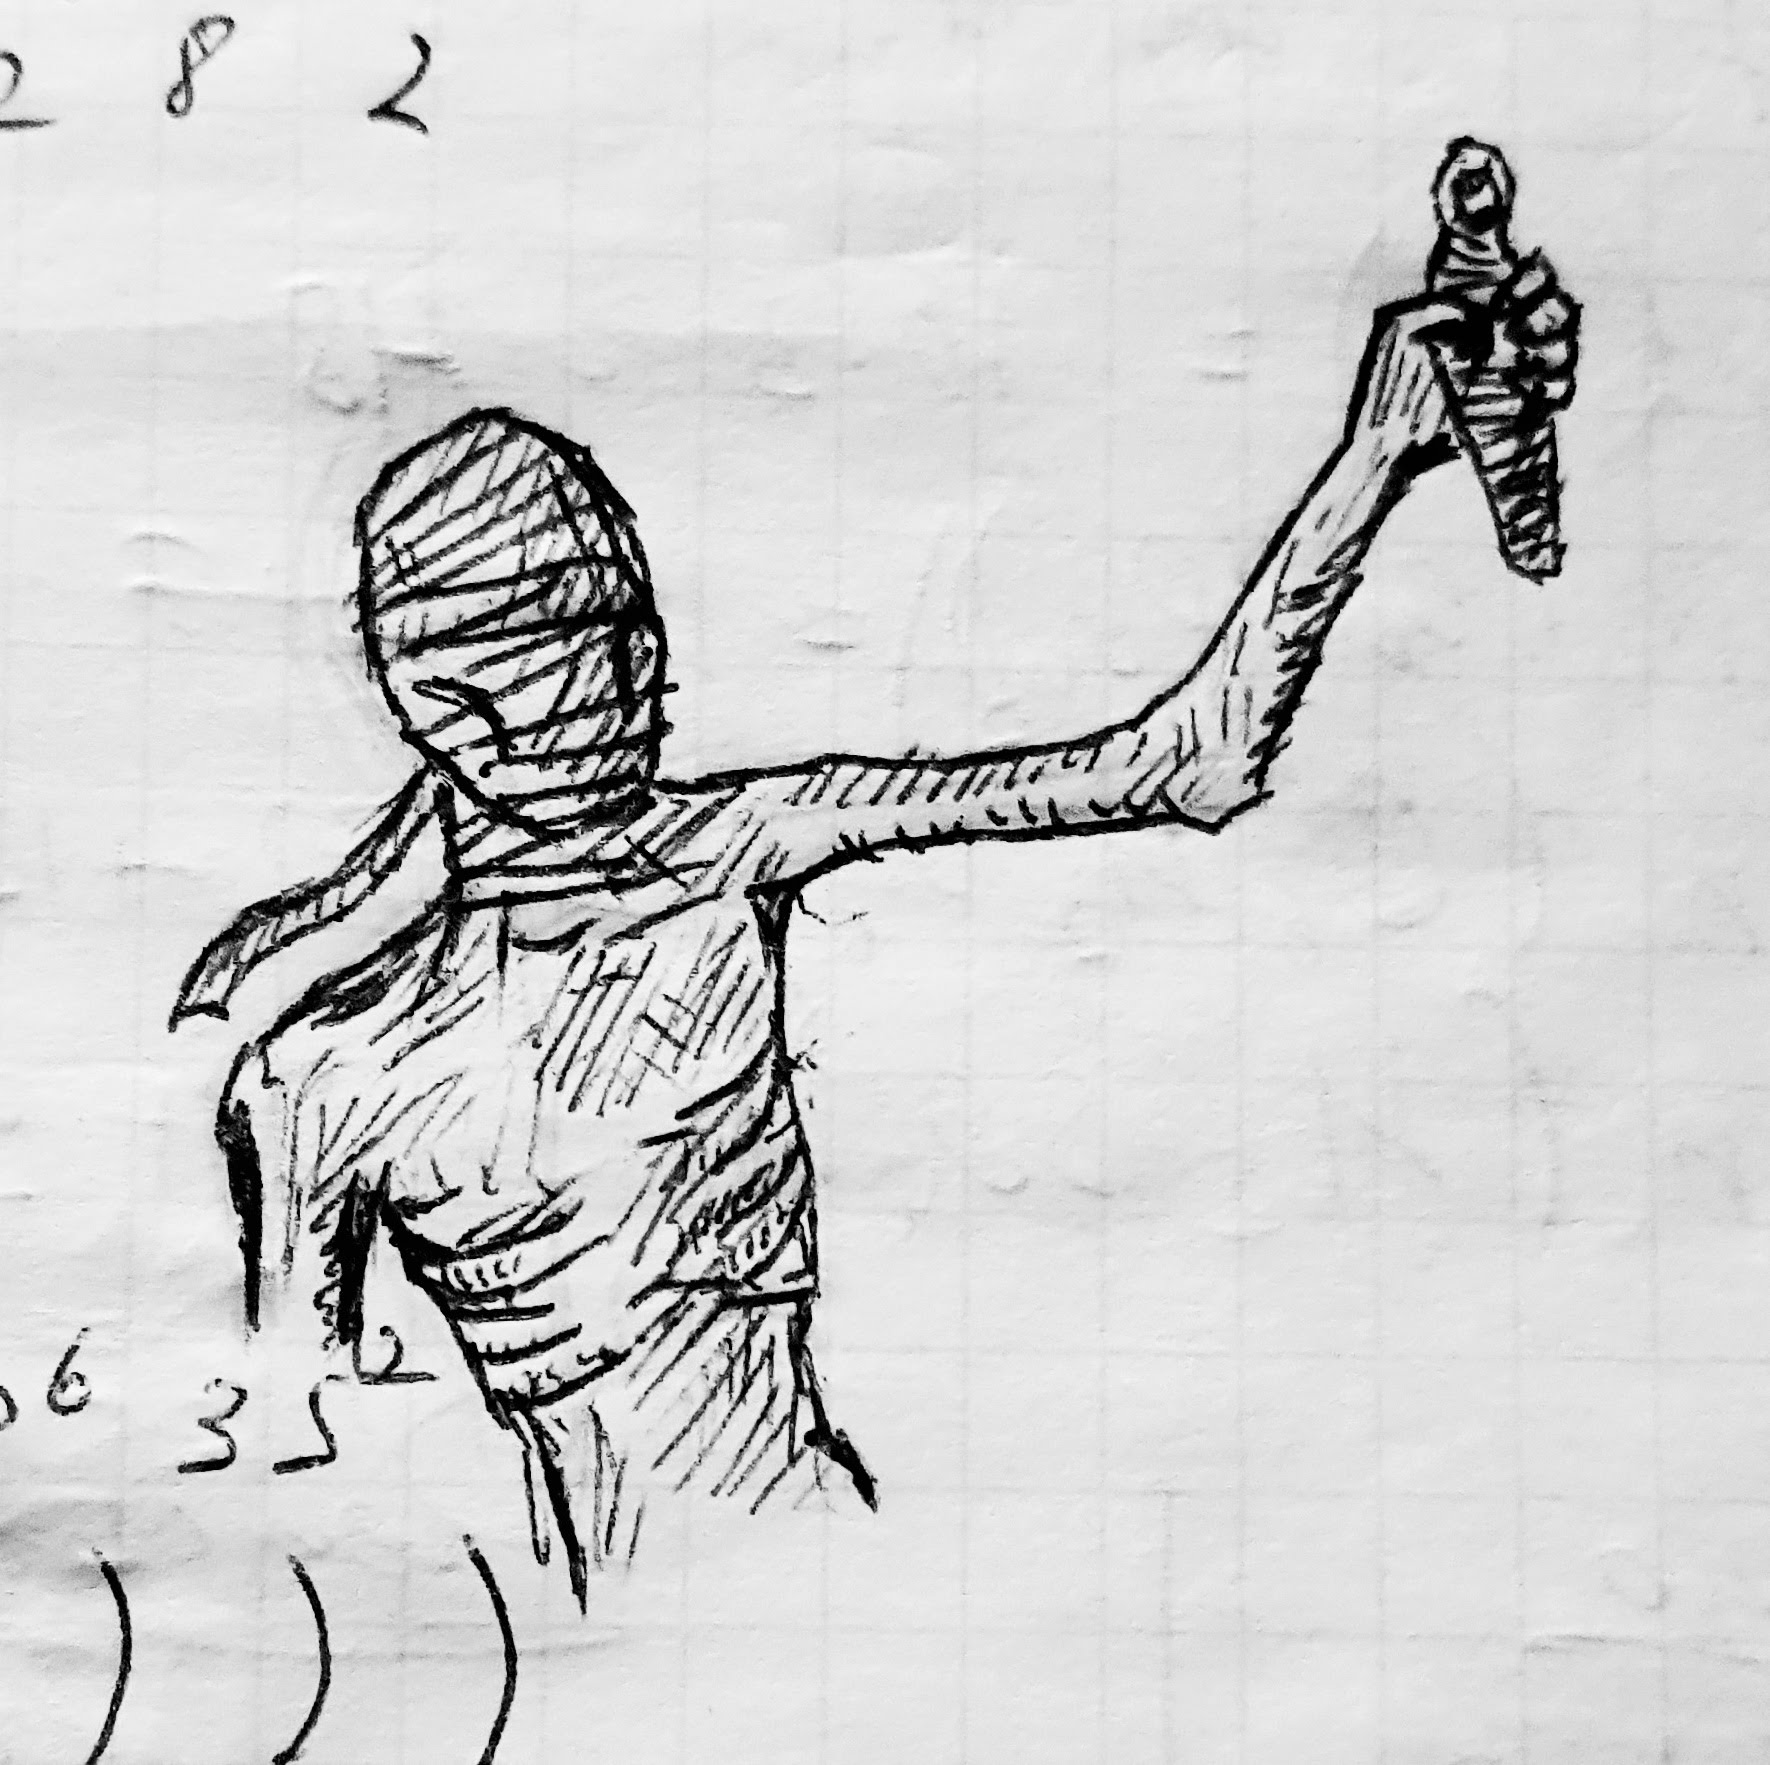 2 8 2
6 3 5 2
) ) )